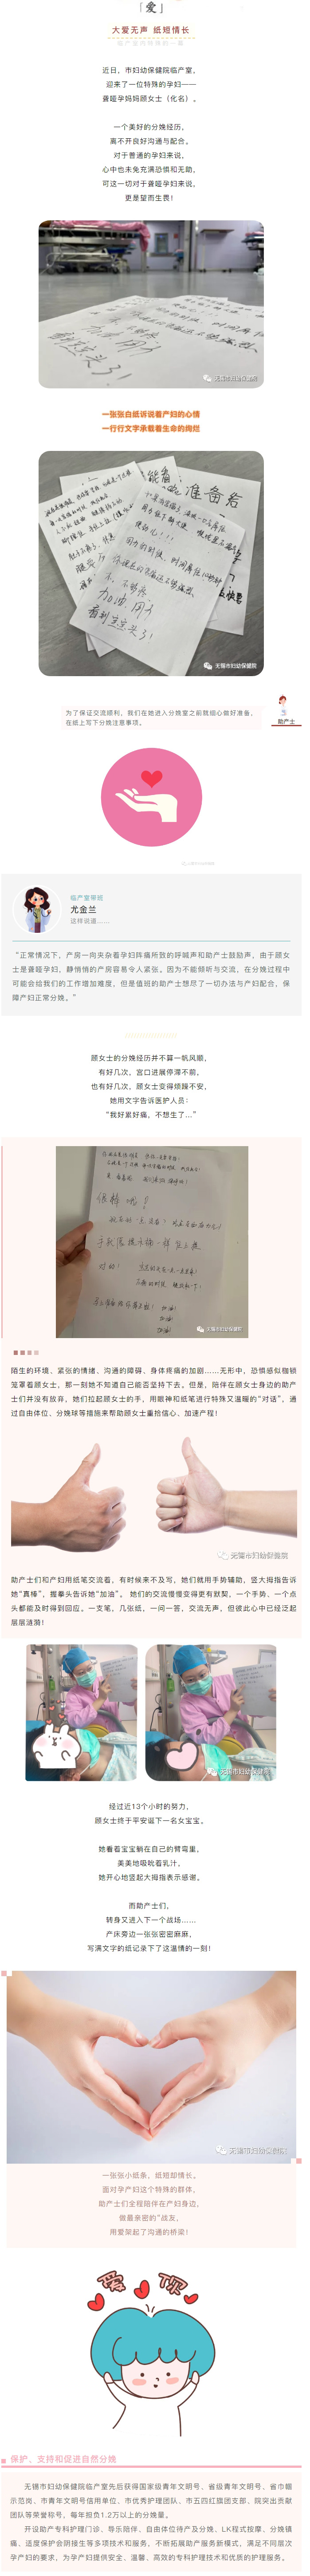 「爱」
大爱无声 纸短情长
近日，市妇幼保健院临产室，
迎来了一位特殊的孕妇——
聋哑孕妈妈顾女士（化名）。
一个美好的分娩经历，
离不开良好沟通与配合。
对于普通的孕妇来说，
心中也未免充满恐惧和无助，
可这一切对于聋哑孕妇来说，
更是望而生畏！
无锡市妇幼保健院
一张张白纸诉说着产妇的心情
一行行文字承载着生命的绚烂
准备若
加油
看到宝宝头了！
无锡市妇幼保健院
为了保证交流顺利，我们在她进入分娩室之前就细心做好准备，
在纸上写下分娩注意事项。
助产士
临产室带班
尤金兰
这样说道……
“正常情况下，产房一向夹杂着孕妇阵痛所致的呼喊声和助产士鼓励声，由于顾女
士是聋哑孕妇，静悄悄的产房容易令人紧张。因为不能倾听与交流，在分娩过程中
可能会给我们的工作增加难度，但是值班的助产士想尽了一切办法与产妇配合，保
障产妇正常分娩。”
顾女士的分娩经历并不算一帆风顺，
有好几次，宫口进展停滞不前，
也有好几次，顾女士变得烦躁不安，
她用文字告诉医护人员：
“我好累好痛，不想生了…”
很棒哦！
加油！
加油！
无锡市妇幼保健院
陌生的环境、紧张的情绪、沟通的障碍、身体疼痛的加剧……无形中，恐惧感似枷锁
笼罩着顾女士，那一刻她不知道自己能否坚持下去。但是，陪伴在顾女士身边的助产
士们并没有放弃，她们拉起顾女士的手，用眼神和纸笔进行特殊又温暖的“对话”，通
过自由体位、分娩球等措施来帮助顾女士重拾信心、加速产程！
无锡市妇幼保健院
助产士们和产妇用纸笔交流着，有时候来不及写，她们就用手势辅助，竖大拇指告诉
她“真棒”，握拳头告诉她“加油”。 她们的交流慢慢变得更有默契，一个手势、一个点
头都能及时得到回应。一支笔，几张纸，一问一答，交流无声，但彼此心中已经泛起
层层涟漪！
无锡市妇幼保健院
经过近13个小时的努力，
顾女士终于平安诞下一名女宝宝。
她看着宝宝躺在自己的臂弯里，
美美地吸吮着乳汁，
她开心地竖起大拇指表示感谢。
而助产士们，
转身又进入下一个战场……
产床旁边一张张密密麻麻，
写满文字的纸记录下了这温情的一刻！
无锡市妇幼保健院
一张张小纸条，纸短却情长。
面对孕产妇这个特殊的群体，
助产士们全程陪伴在产妇身边，
做最亲密的“战友，
用爱架起了沟通的桥梁！
爱你
保护、支持和促进自然分娩
无锡市妇幼保健院临产室先后获得国家级青年文明号、省级青年文明号、省巾帼
示范岗、市青年文明号信用单位、市优秀护理团队、市五四红旗团支部、院突出贡献
团队等荣誉称号，每年担负1.2万以上的分娩量。
开设助产专科护理门诊、导乐陪伴、自由体位待产及分娩、LK程式按摩、分娩镇
痛、适度保护会阴接生等多项技术和服务，不断拓展助产服务新模式，满足不同层次
孕产妇的要求，为孕产妇提供安全、温馨、高效的专科护理技术和优质的护理服务。